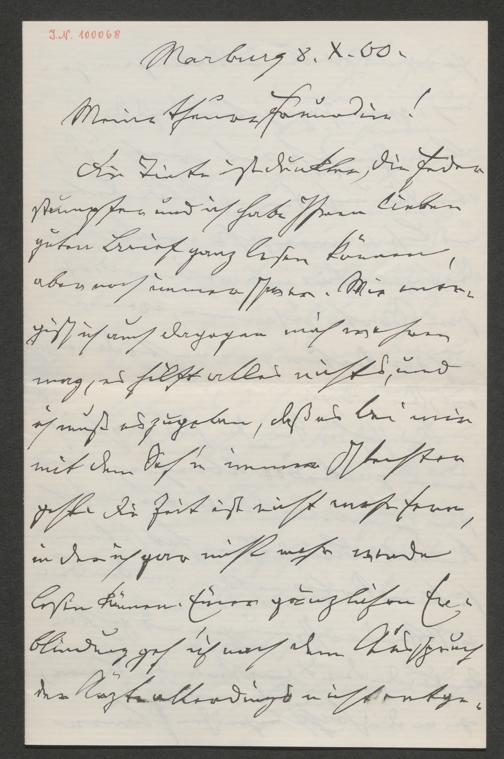 I.N. 100068
Marburg 8. X. 00.
Meine theure Freundin!
Die Tinte ist dunkler, die Feder
stumpfer und ich habe Ihren lieben
guten Brief ganz lesen können,
aber noch immer schwer. Wie
ich auch dagegen mich wehren
mag, es hilft alles nichts, und
ich muß es zugeben, daß es bei mir
mit dem Seh'n immer schlechter
geht. Die Zeit ist nicht mehr fern,
in der ich gar nicht mehr werde
lesen können. Einer gänzlichen Er-
blindung geh' ich nach dem Ausspruch
der Ärzte allerdings nicht entge-